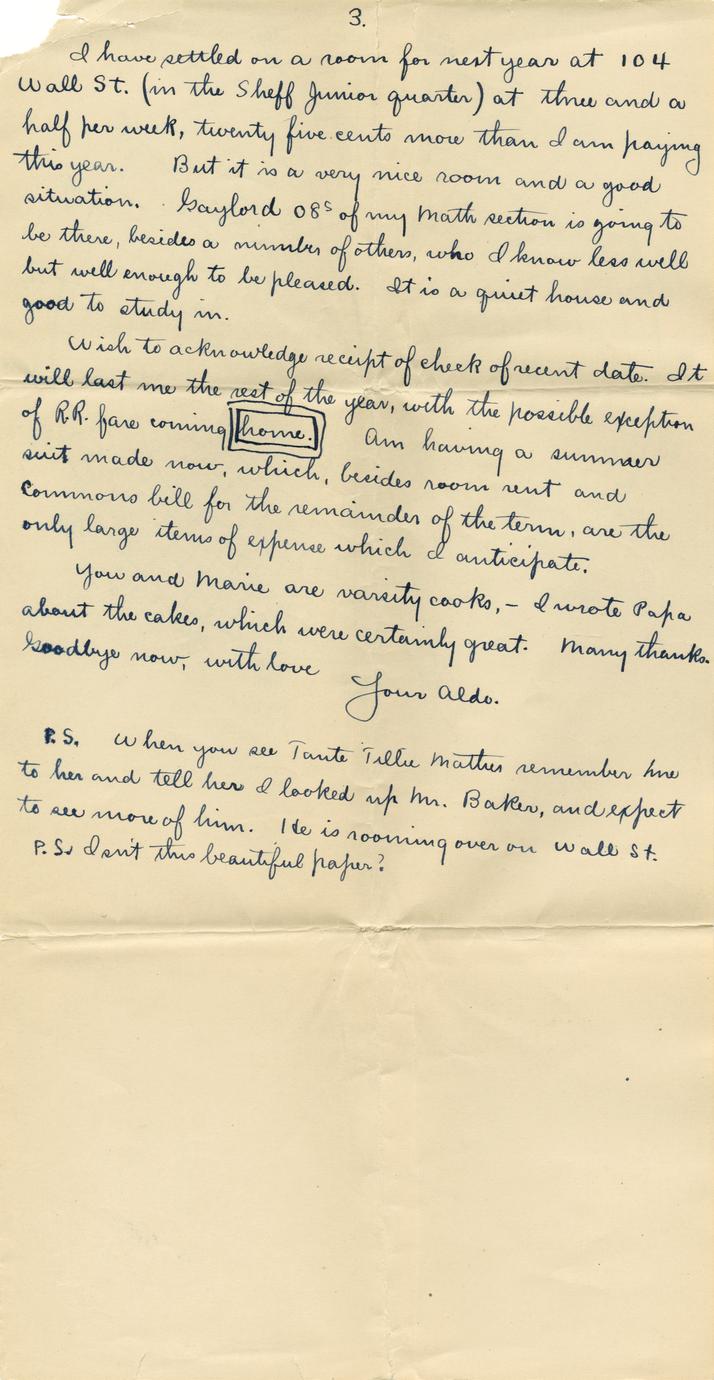 3.
I have settled on a room for next year at 104
Wall St. (in the Sheff Junior quarter) at three and a
half per week, twenty five cents more than I am paying
this year. But it is a very nice room and a good
situation. Gaylord 08S of my Math section is going to
be there, besides a number of others, who I know less well
but well enough to be pleased. It is a quiet house and
good to study in.
Wish to acknowledge receipt of check of recent date. It
will last me the rest of the year, with the possible exception
of R.R. fare coming home. Am having a summer
suit made now, which, besides room rent and
commons bill for the remainder of the term, are the
only large items of expense which I anticipate.
You and Marie are varsity cooks, – I wrote Papa
about the cakes, which were certainly great. Many thanks.
Goodbye now, with love
Your Aldo.
P.S. When you see Tante Tillie Mathes remember me
to her and tell her I looked up Mr. Baker, and expect
to see more of him. He is rooming over on Wall St.
P.S. Isn't this beautiful paper?